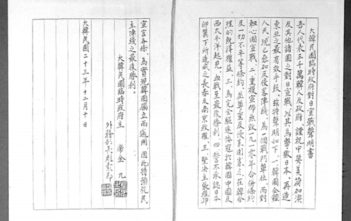 大韓民國臨時政府對日宣戰聲明書
吾人代表三千萬韓人及政府 謹祝中英美荷加澳
及其他諸國之對日宣戰 以其為擊敗日本 再造
東亞之最有效手段 茲特聲明如下 一 韓國全體
人民 現已參加反侵略陣線 為一個戰鬥單位 而對
軸心國宣戰 二 重複宣佈無效一九一〇年合併條約
及一切不平等條約 並尊重反侵略國家之在韓合
理的既得權益 三 為完全驅逐倭寇於韓國中國及
西太平洋起見 血戰至最後勝利 四 誓不承認日本
卵翼下所造成之長春及南京政權 五 堅決主張羅邱
宣言各條 為實現韓國獨立而適用 因此特預祝民
主陣線之最後勝利
大韓民國臨時政府主席金九
外務部長趙素昂
大韓民國二十三年十二月十日